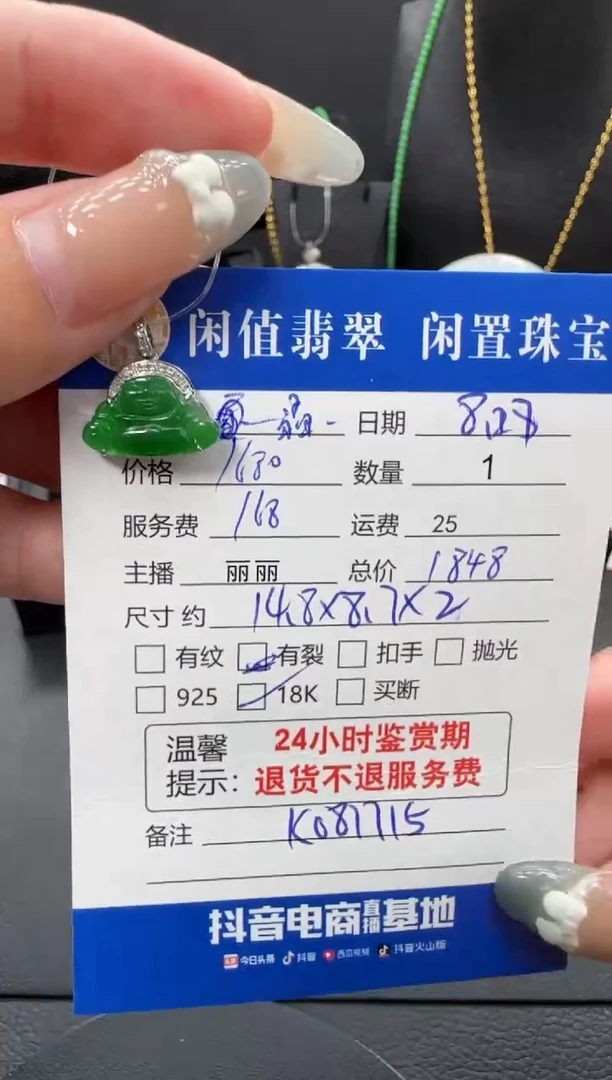 闲值翡翠 闲置珠宝
日期
价格 1680 数量 1
服务费 168 运费 25
主播 丽丽 总价 1848
尺寸 约 14.8×8.7×2
有纹 有裂 扣手 抛光
925 18K 买断
温馨提示: 24小时鉴赏期
退货不退服务费
备注 K081715
抖音电商直播基地
今日头条 抖音 西瓜视频 抖音火山版